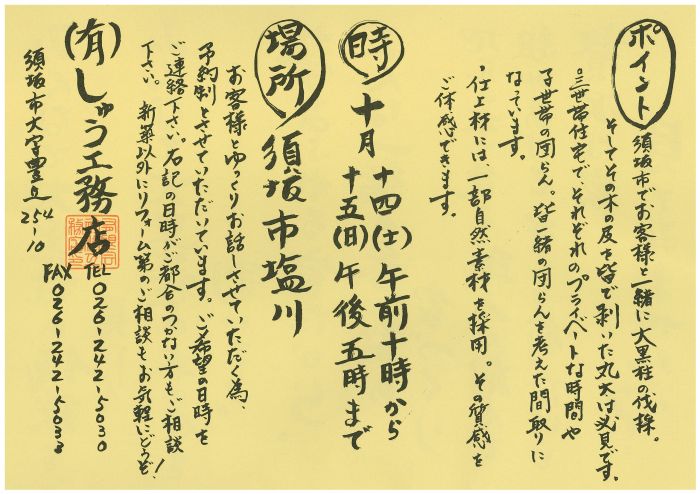 ポイント
須坂市でお客様と一緒に大黒柱の伐採。
そしてその木の皮を皆で剥いた丸太は必見です。
・三世帯住宅で、それぞれのプライベートな時間や
子世帯の団らん。皆一緒の団らんを考えた間取りに
なっています。
・仕上材には、一部自然素材を採用。その質感を
ご体感できます。
時
十月 十四(土) 午前十時から
十五(日) 午後五時まで
場所 須坂市塩川
お客様とゆっくりお話しさせていただく為、
予約制とさせていただいています。ご希望の日時を
ご連絡下さい。右記の日時がご都合のつかない方もご相談
下さい。新築以外にリフォーム等のご相談もお気軽にどうぞ!
(有)しゅう工務店
TEL 026-242-5030
FAX 026-242-5033
須坂市大字豊丘254-10